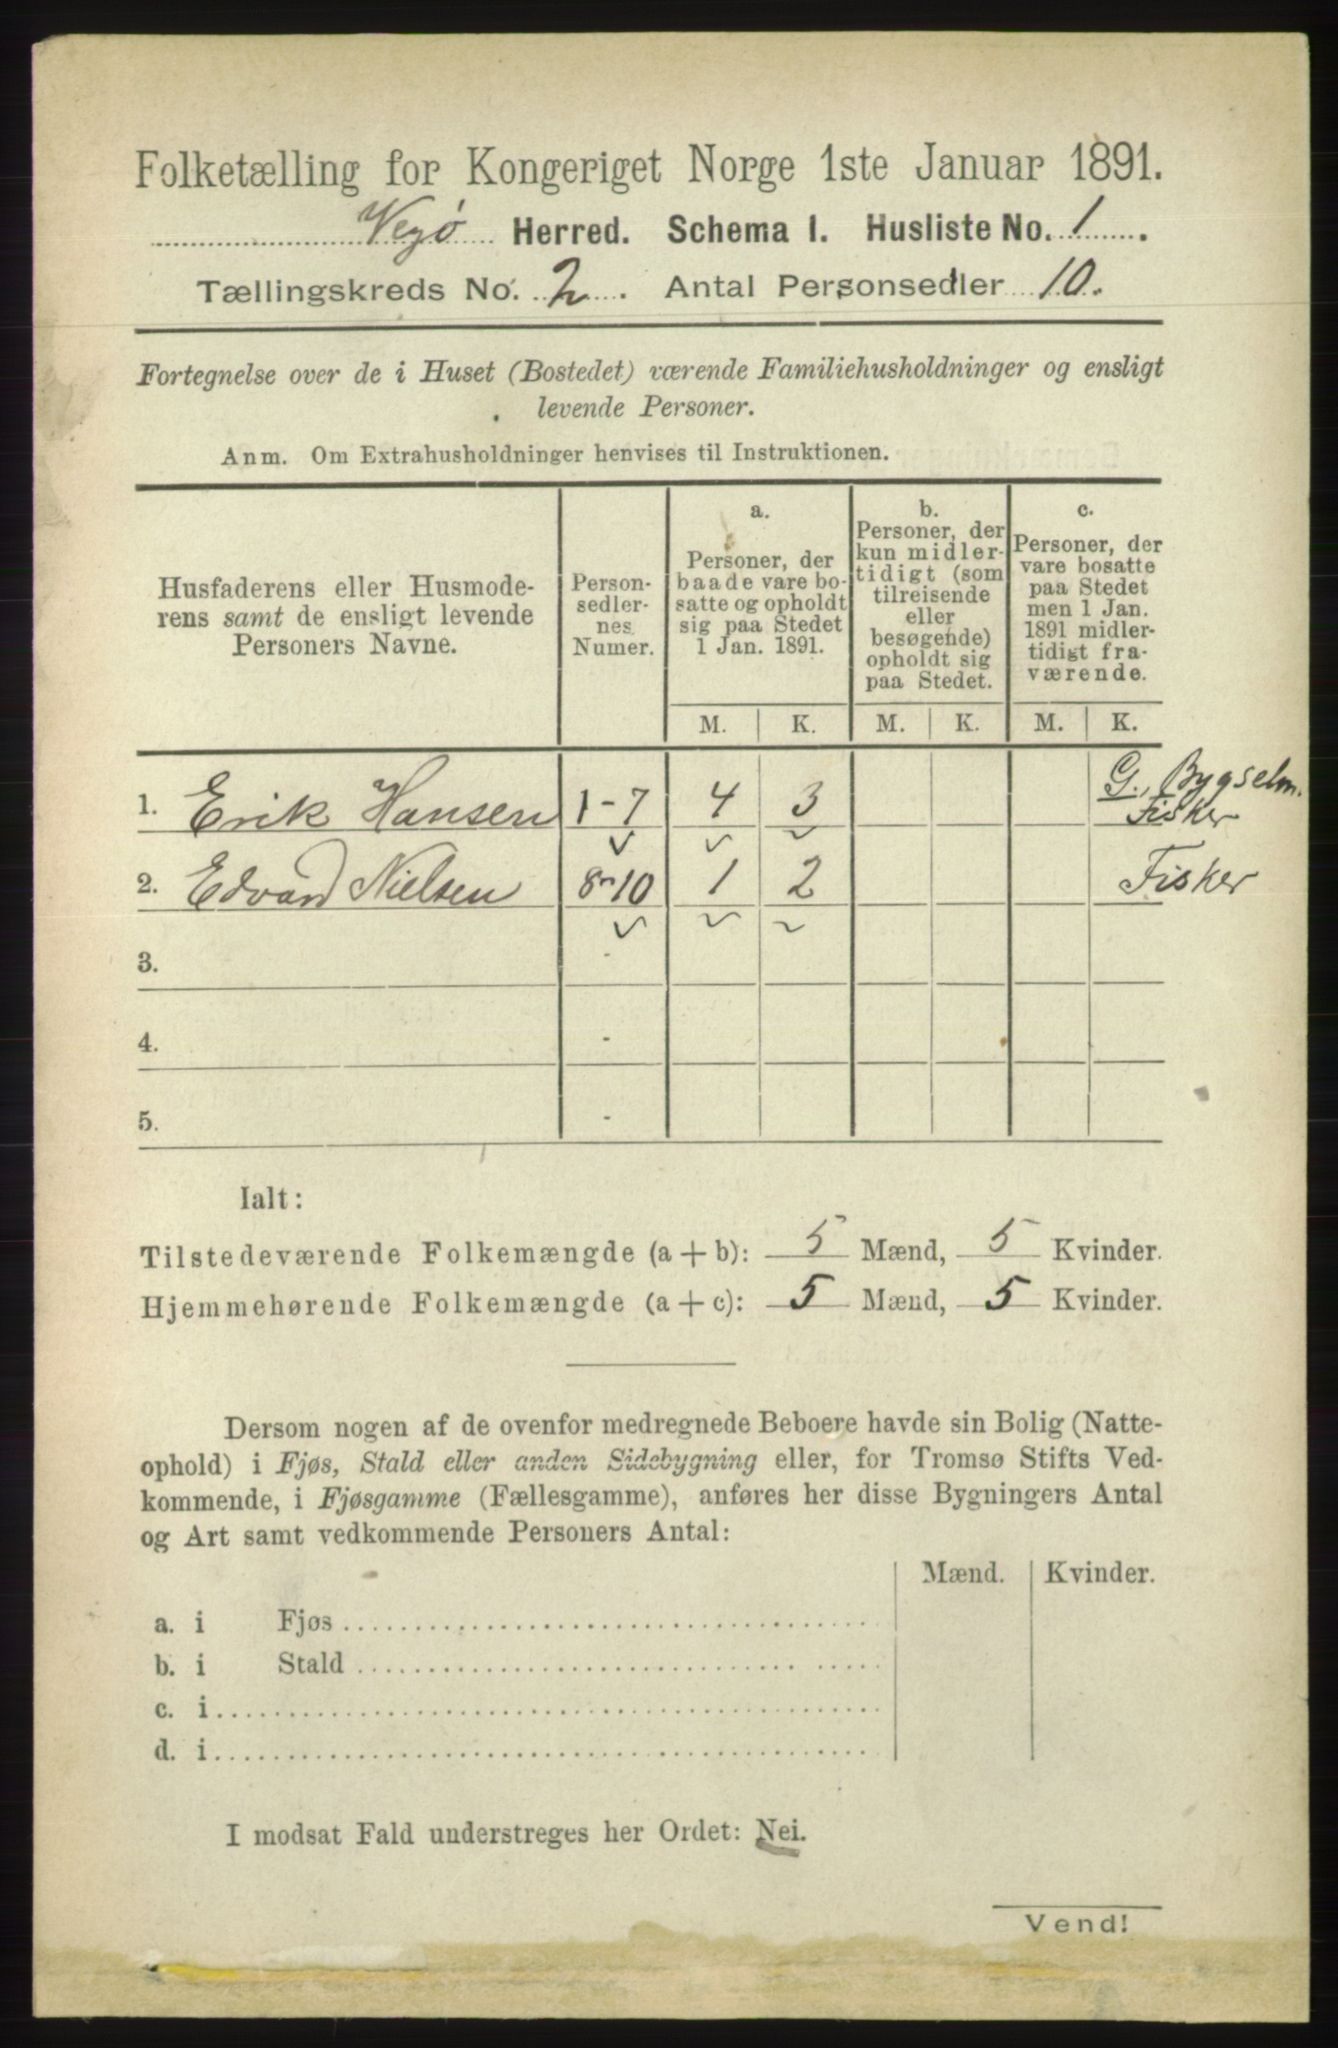 Folketælling for Kongeriget Norge 1ste Januar 1891.
Vegø Herred. Schema I. Husliste No. 1.
Tællingskreds No. 2. Antal Personsedler 10.
Fortegnelse over de i Huset (Bostedet) værende Familiehusholdninger og ensligt
levende Personer.
Anm. Om Extrahusholdninger henvises til Instruktionen.
Husfaderens eller Husmode-
rens samt de ensligt levende
Personers Navne.
Person-
sedler-
nes
Numer.
a.
Personer, der
baade vare bo-
satte og opholdt
sig paa Stedet
1 Jan. 1891.
b.
Personer, der
kun midler-
tidigt (som
tilreisende
eller
besøgende)
opholdt sig
paa Stedet.
c.
Personer, der
vare bosatte
paa Stedet
men 1 Jan.
1891 midler-
tidigt fra-
værende.
M. K. M. K. M. K.
1. Erik Hansen 1-7 4 3 G., Bygselm.
Fisker
2. Edvard Nielsen 8-10 1 2 Fisker
3. -
4. -
5. -
Ialt:
Tilstedeværende Folkemængde (a + b): 5 Mænd, 5 Kvinder.
Hjemmehørende Folkemængde (a + c): 5 Mænd, 5 Kvinder.
Dersom nogen af de ovenfor medregnede Beboere havde sin Bolig (Natte-
ophold) i Fjøs, Stald eller anden Sidebygning eller, for Tromsø Stifts Ved-
kommende, i Fjøsgamme (Fællesgamme), anføres her disse Bygningers Antal
og Art samt vedkommende Personers Antal:
Mænd. Kvinder.
a. i Fjøs
b. i Stald
c. i
d. i
I modsat Fald understreges her Ordet: Nei.
Vend!